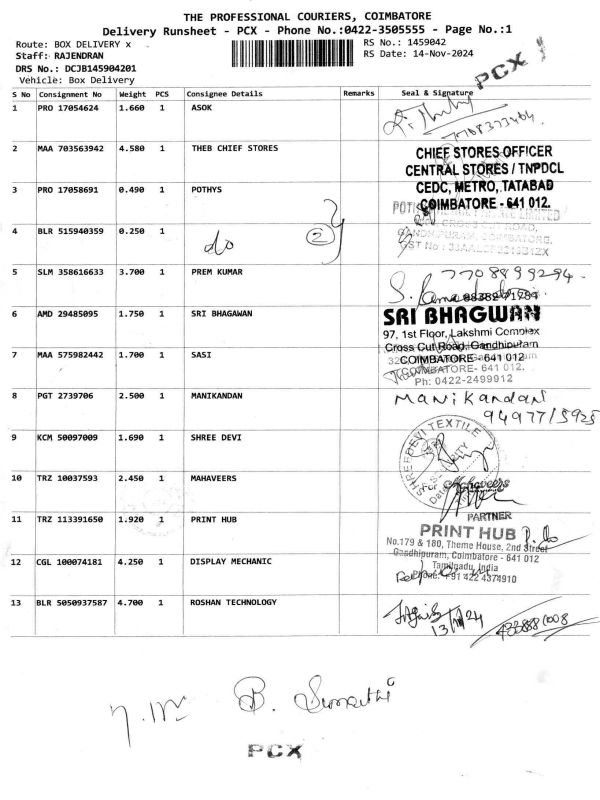 THE PROFESSIONAL COURIERS, COIMBATORE
Delivery Runsheet - PCX - Phone No.:0422-3505555 - Page No.:1
Route: BOX DELIVERY x
RS No.: 1459042
Staff: RAJENDRAN
RS Date: 14-Nov-2024
DRS No.: DCJB145904201
Vehicle: Box Delivery
PCX
S No Consignment No Weight PCS Consignee Details Remarks Seal & Signature
1 PRO 17054624 1.660 1 ASOK
2 MAA 703563942 4.580 1 THEB CHIEF STORES
CHIEF STORES OFFICER
CENTRAL STORES / TNPDCL
CEDC, METRO, TATABAD
COIMBATORE - 641 012.
3 PRO 17058691 0.490 1 POTHYS
4 BLR 515940359 0.250 1
do 2
5 SLM 358616633 3.700 1 PREM KUMAR
7708899294
6 AMD 29485095 1.750 1 SRI BHAGAWAN
SRI BHAGWAN
97, 1st Floor, Lakshmi Complex
Cross Cut Road, Gandhipuram
COIMBATORE - 641 012
7 MAA 575982442 1.700 1 SASI
COIMBATORE- 641 012.
Ph: 0422-2499912
8 PGT 2739706 2.500 1 MANIKANDAN
Manikandan
9 KCM 50097009 1.690 1 SHREE DEVI
SHREEDEVI TEXTILE
10 TRZ 10037593 2.450 1 MAHAVEERS
For Mahaveers
PARTNER
11 TRZ 113391650 1.920 1 PRINT HUB
PRINT HUB
No.179 & 180, Theme House, 2nd Street
Gandhipuram, Coimbatore - 641 012
Tamilnadu, India
Phone: +91 422 4374910
12 CGL 100074181 4.250 1 DISPLAY MECHANIC
13 BLR 5050937587 4.700 1 ROSHAN TECHNOLOGY
13/11/24
B. Sumathi
PCX